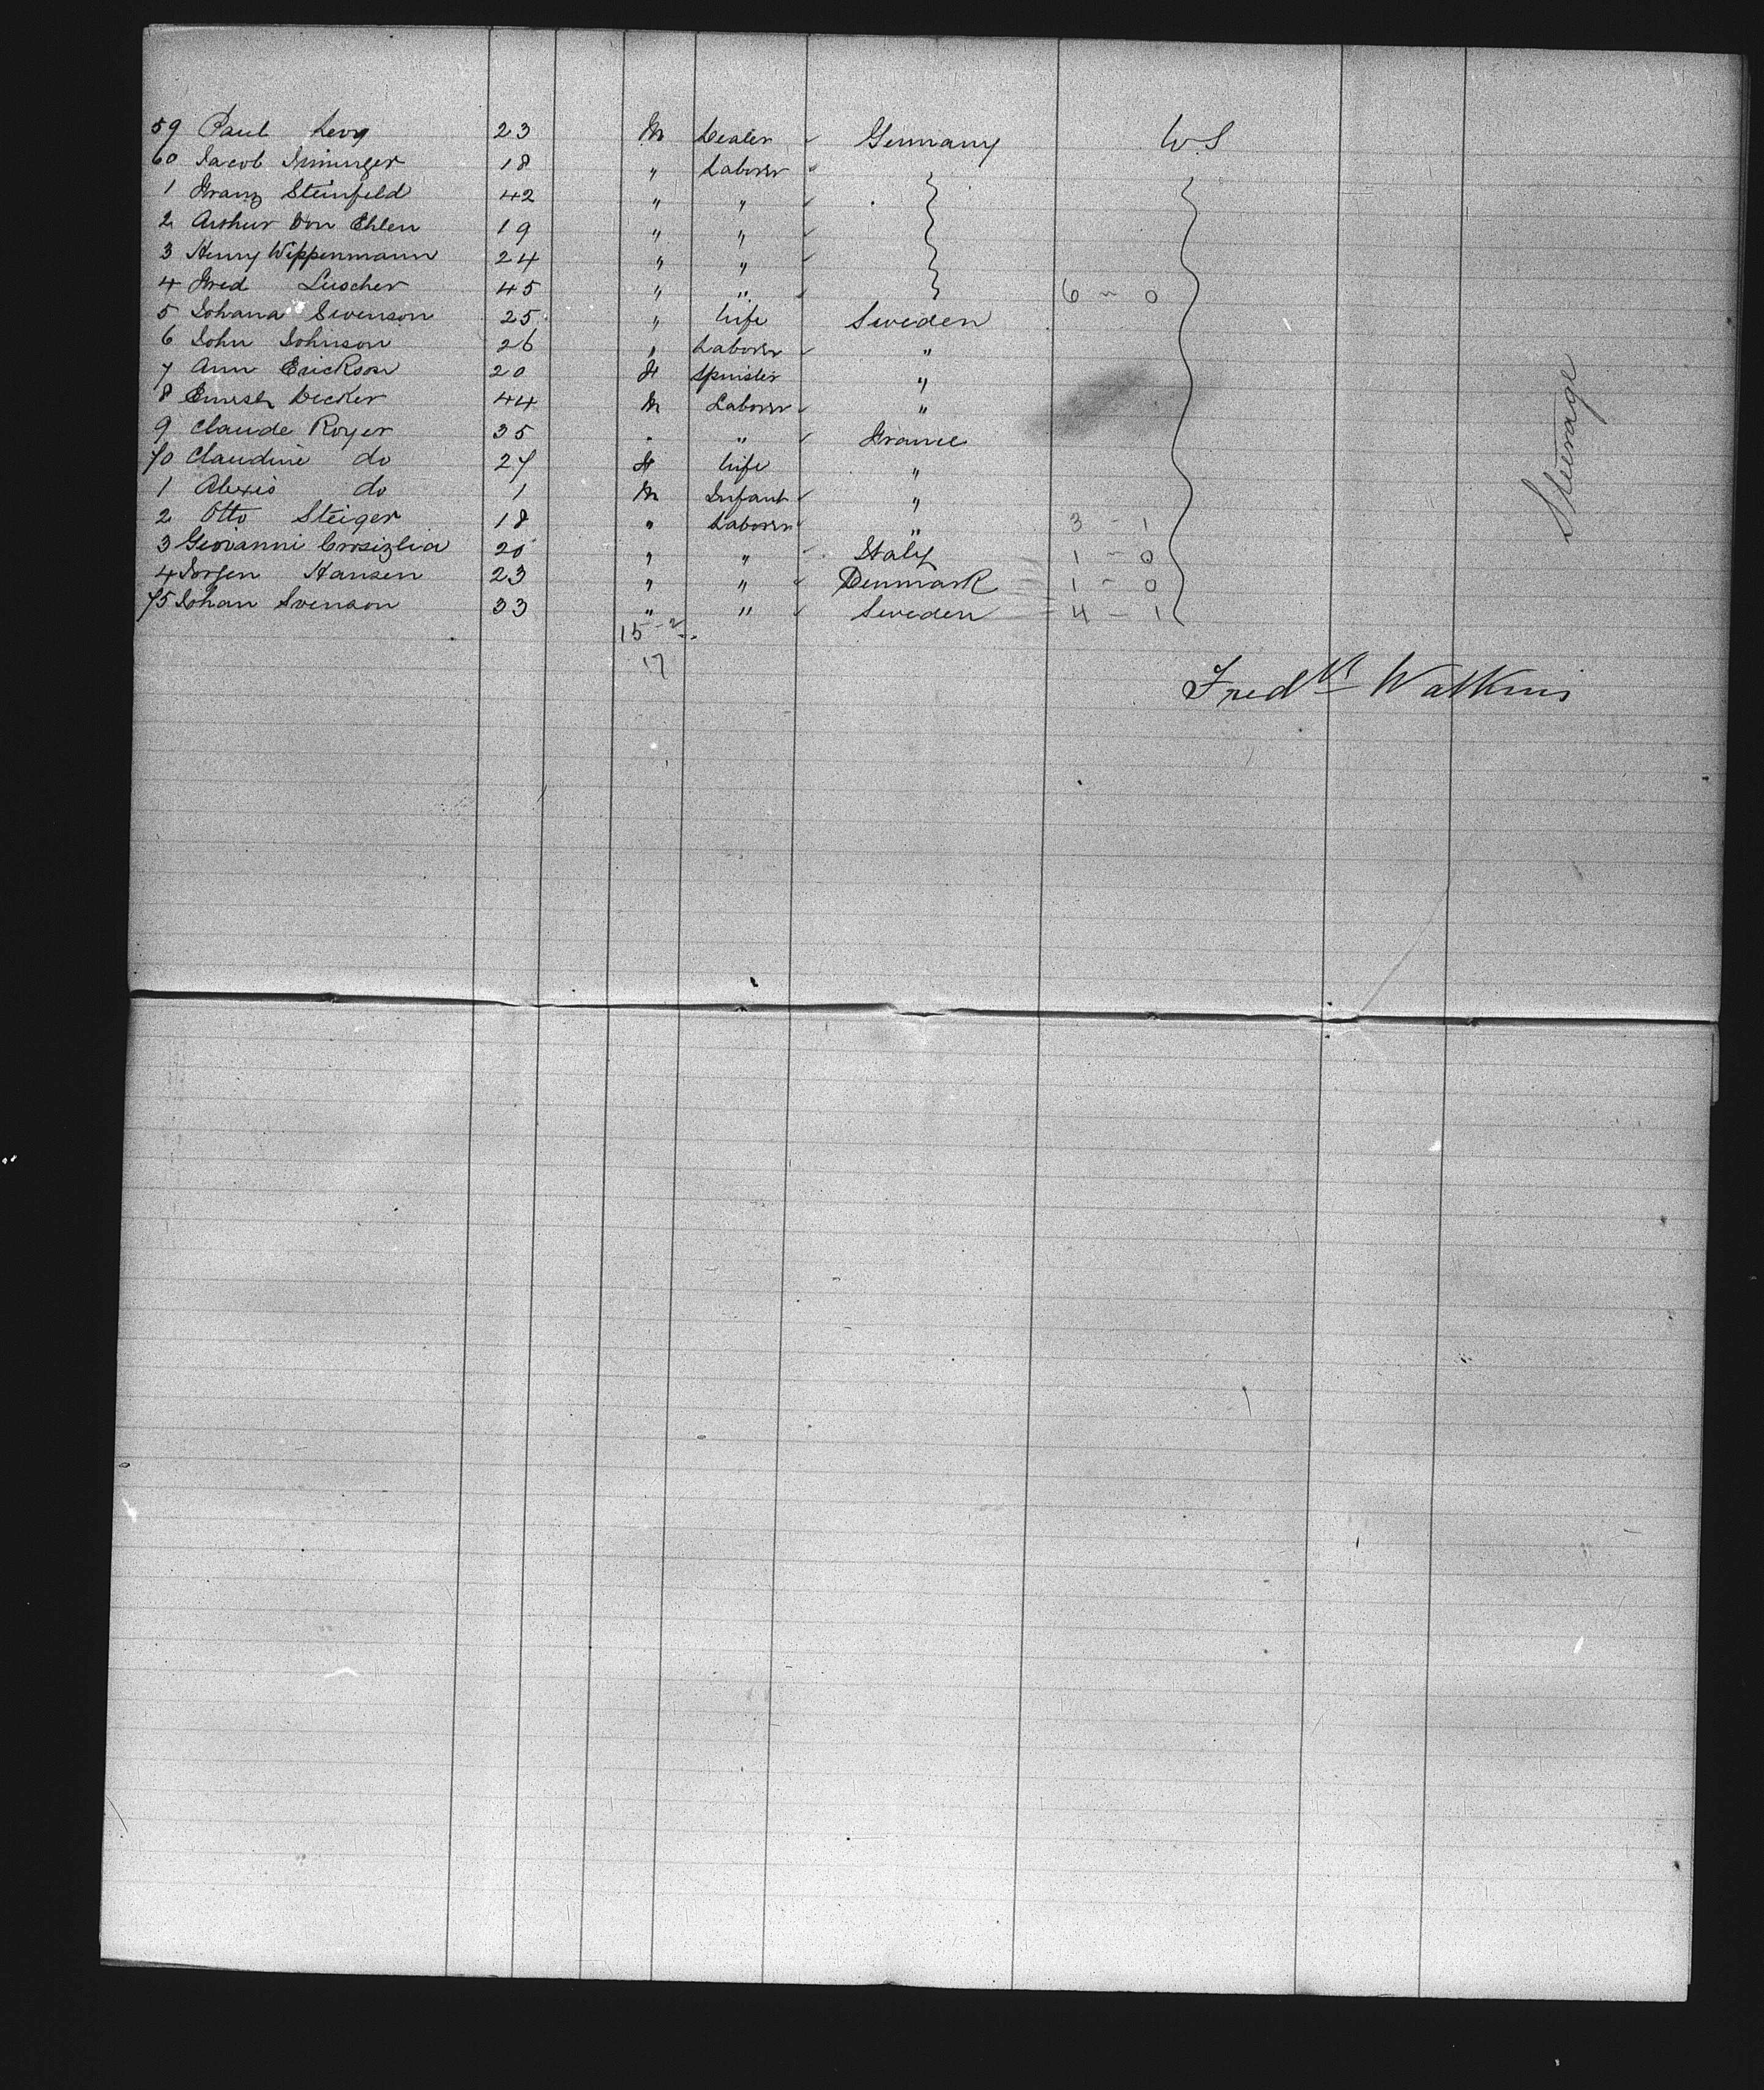 59 Paul Levy 23 M Dealer Germany U S
60 Jacob 18 " Laborer "
1 Franz Steinfeld 42 " "
2 Arthur Von Ehlen 19 " "
3 Henry Wippenmann 24 " "
4 Fred Lüscher 45 " " 6 - 0
5 Johana Swenson 25 " Wife Sweden
6 John Johnson 26 " Laborer "
7 Ann Erickson 20 F Spinster "
8 Decker 44 M Laborer "
9 Claude Royer 35 " " France
70 Claudine do 27 F Wife "
1 Alexis do 1 M Infant "
2 Otto Steiger 18 " Laborer " 3 - 1
3 Giovanni 20 " " Italy 1 - 0
4 Jorgen Hansen 23 " " Denmark 1 - 0
75 Johan Svenson 33 " " Sweden 4 - 1
15 - 2
17
Steerage
Fredk Watkins